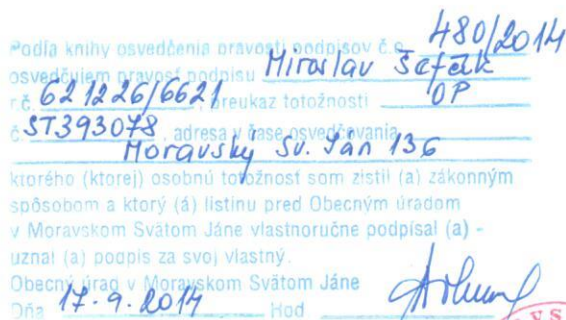 Podľa knihy osvedčenia pravosti podpisov č.o. 480/2014
osvedčujem pravosť podpisu Miroslav Šefčík
r.č. 621226/6621, preukaz totožnosti OP
č. ST393078, adresa v čase osvedčovania
Moravský Sv. Ján 136
ktorého (ktorej) osobnú totožnosť som zistil (a) zákonným
spôsobom a ktorý (á) listinu pred Obecným úradom
v Moravskom Svätom Jáne vlastnoručne podpísal (a) -
uznal (a) podpis za svoj vlastný.
Obecný úrad v Moravskom Svätom Jáne
Dňa 17.9.2014 Hod